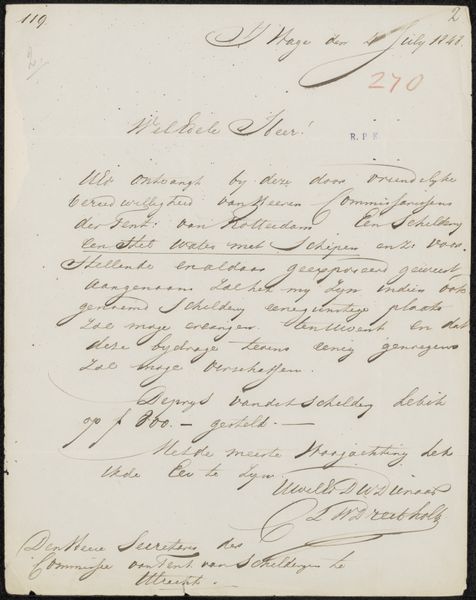 119.
2
2
S'Hage den 4 July 1848.
270
WelEdele Heer!
R.P.K.
UEd ontvangt by deze door vriendelyke
bereidwilligheid van Heeren Commissarissen
der Tent: van Rotterdam Een Schildery
een Stil water met Schepen enz. voor
Stellende en aldaar geexposeerd geweest
Aangenaam zou het my zyn indien ook
genoemd Schildery eene gunstige plaats
zoe moge erlangen te Utrecht en dat
deze bydrage tevens eenig genoegen
zoe moge verschaffen.
De prys van dit schildery heb ik
op f 300.— gesteld.—
Met de meeste Hoogachting heb
ik de Eer te zyn
UwelEd DWDienaar
C L W Dreibholtz
Den Heere Secretaris des
Commissie van Tent van Schilderyen te
Utrecht.